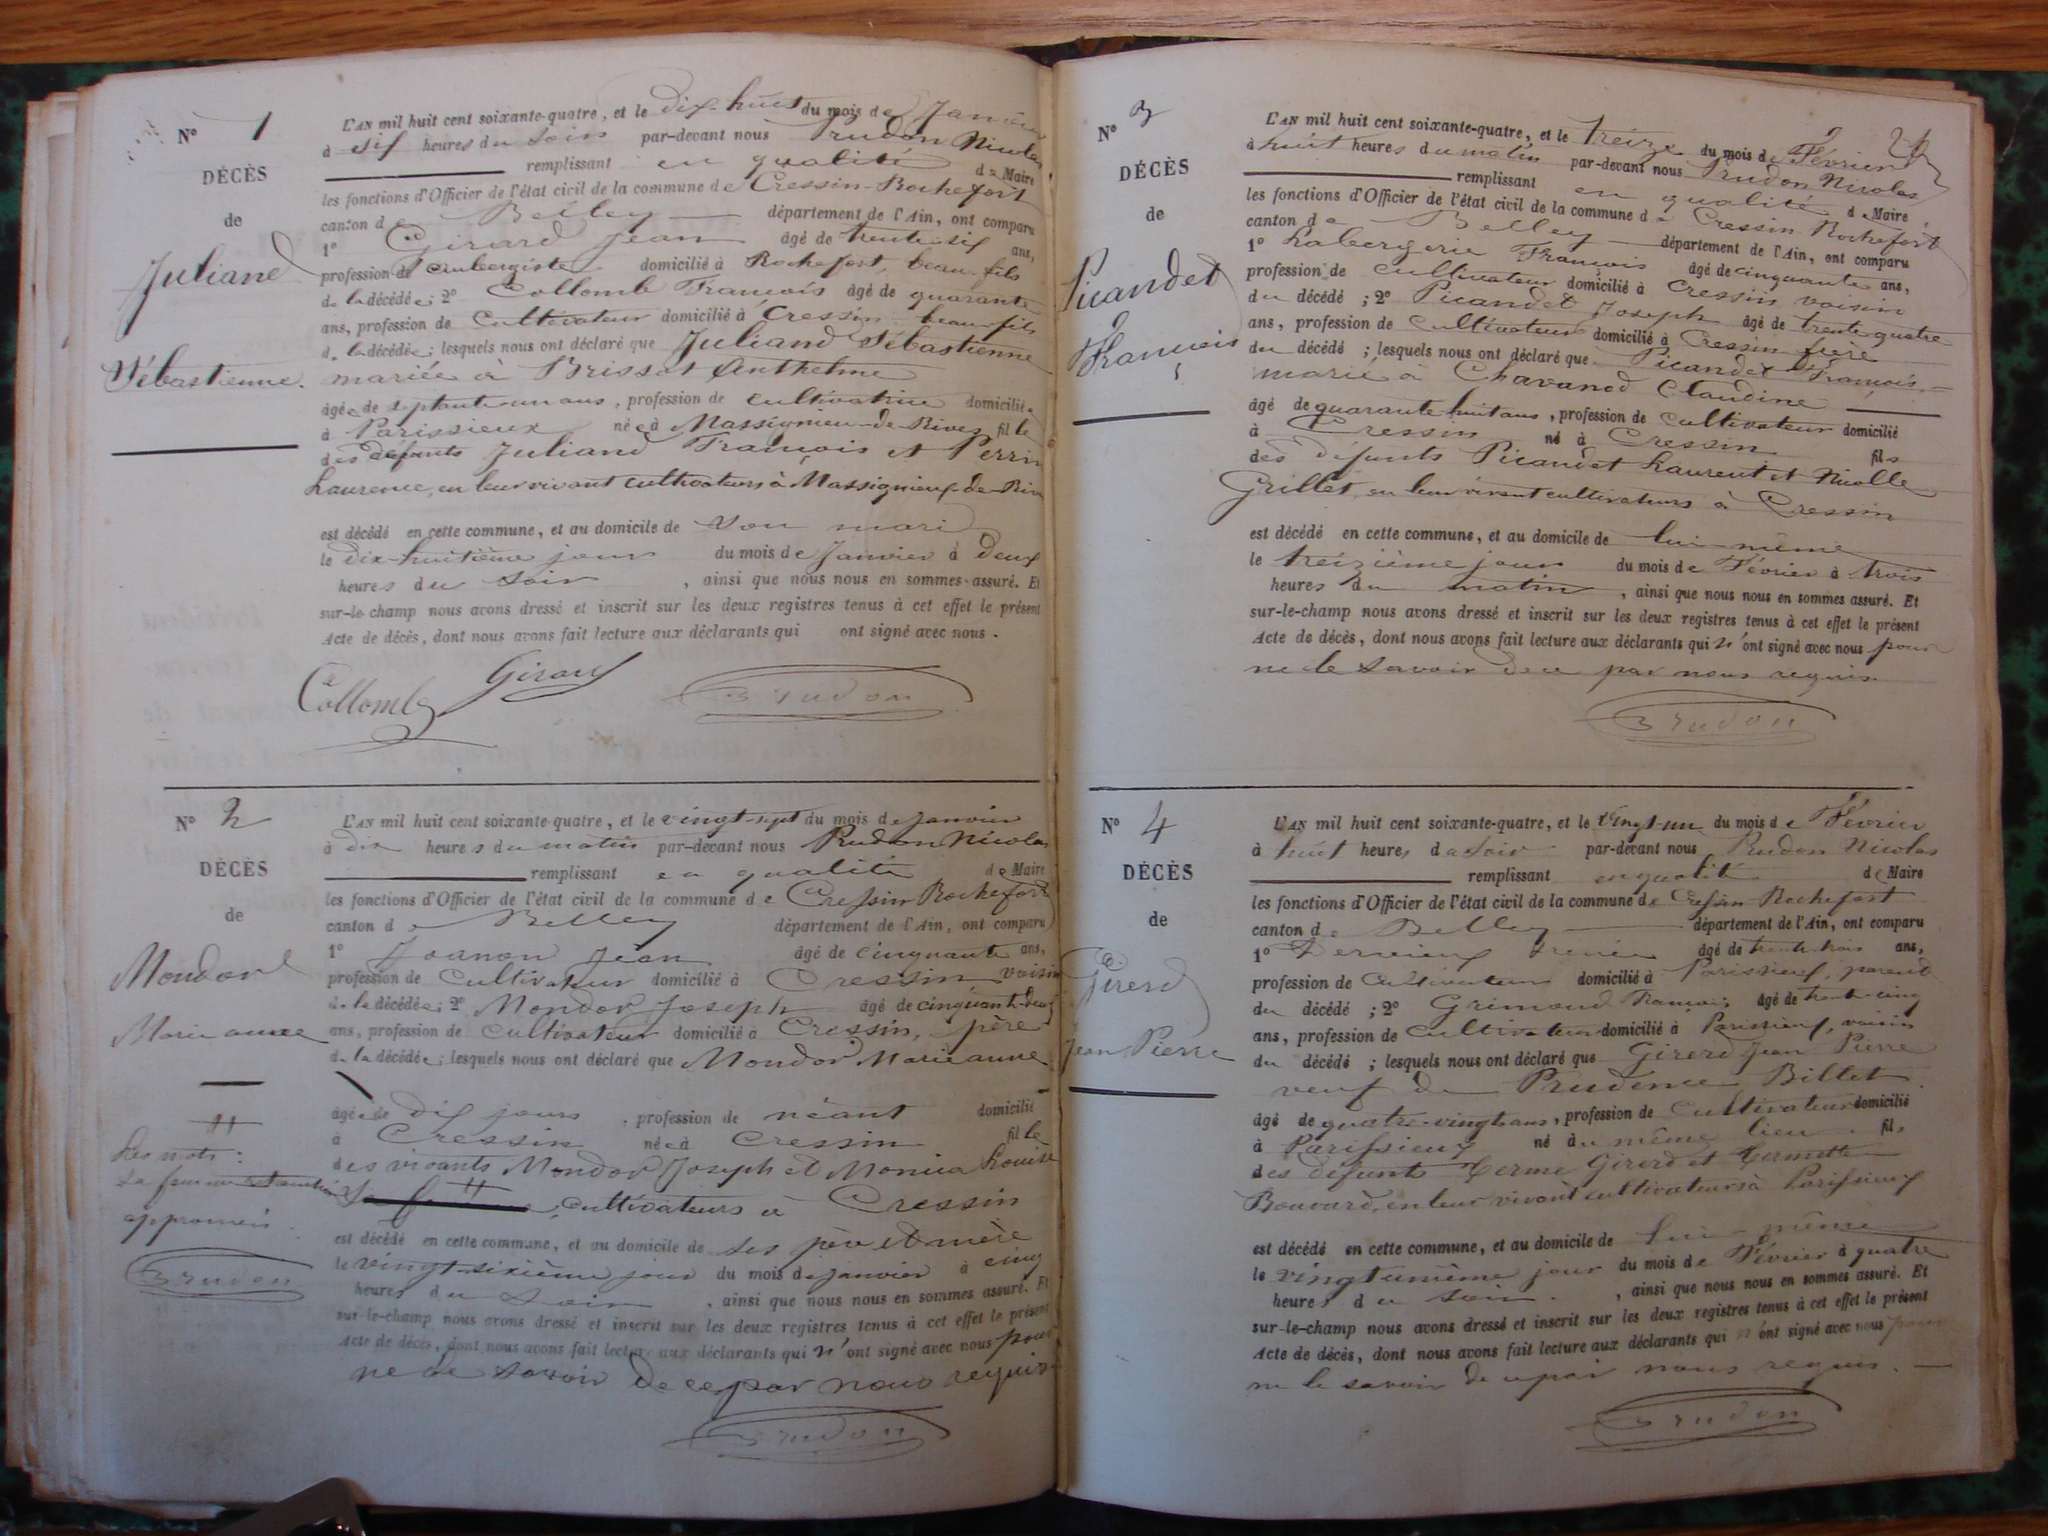 N° 1
DÉCÈS
de
Juliand
Sébastienne.
L'AN mil huit cent soixante-quatre, et le dix-huit du mois de Janvier
à six heures du soir par-devant nous Prudon Nicolas
remplissant en qualité de Maire
les fonctions d'Officier de l'état civil de la commune de Cressin-Rochefort
canton de Belley département de l'Ain, ont comparu
1° Girard Jean âgé de trente-six ans,
profession de aubergiste domicilié à Rochefort, beau-fils
de la décédée; 2° Collomb François âgé de quarante
ans, profession de cultivateur domicilié à Cressin beau-fils
de la décédée; lesquels nous ont déclaré que Juliand Sébastienne
mariée à Brissot Anthelme
âgée de septante-un ans, profession de cultivatrice domiciliée
à Parissieux née à Massignieu-de-Rives fille
des défunts Juliand François et Perrin
Laurence, en leur vivant cultivateurs à Massignieux-de-Rives
est décédé en cette commune, et au domicile de son mari
le dix-huitième jour du mois de Janvier à deux
heures du soir, ainsi que nous nous en sommes assuré. Et
sur-le-champ nous avons dressé et inscrit sur les deux registres tenus à cet effet le présent
Acte de décès, dont nous avons fait lecture aux déclarants qui ont signé avec nous.
Collomb Girard Prudon
N° 2
DÉCÈS
de
Mondor
Marie anne
Les mots:
La femme
approuvés
Prudon
L'AN mil huit cent soixante-quatre, et le vingt-sept du mois de Janvier
à dix heures du matin par-devant nous Prudon Nicolas
remplissant en qualité de Maire
les fonctions d'Officier de l'état civil de la commune de Cressin Rochefort
canton de Belley département de l'Ain, ont comparu
1° Joanon Jean âgé de cinquante ans,
profession de cultivateur domicilié à Cressin voisin
de la décédée; 2° Mondor Joseph âgé de cinquante-deux
ans, profession de cultivateur domicilié à Cressin, père
de la décédée; lesquels nous ont déclaré que Mondor Marie anne
âgée de dix jours, profession de néant domicilié
à Cressin née à Cressin fille
des vivants Mondor Joseph et Monica Louise
cultivateurs à Cressin
est décédé en cette commune, et au domicile de ses père et mère
le vingt-sixième jour du mois de Janvier à cinq
heures du soir, ainsi que nous nous en sommes assuré. Et
sur-le-champ nous avons dressé et inscrit sur les deux registres tenus à cet effet le présent
Acte de décès, dont nous avons fait lecture aux déclarants qui n'ont signé avec nous pour
ne le savoir de ce par nous requis
Prudon
N° 3
DÉCÈS
de
Picandet
François
L'AN mil huit cent soixante-quatre, et le treize du mois de Février
à huit heures du matin par-devant nous Prudon Nicolas
remplissant en qualité de Maire
les fonctions d'Officier de l'état civil de la commune de Cressin Rochefort
canton de Belley département de l'Ain, ont comparu
1° Labergerie François âgé de cinquante ans,
profession de cultivateur domicilié à Cressin voisin
du décédé; 2° Picandet Joseph âgé de trente-quatre
ans, profession de cultivateur domicilié à Cressin frère
du décédé; lesquels nous ont déclaré que Picandet François
marié à Chavanod Claudine
âgé de quarante-huit ans, profession de cultivateur domicilié
à Cressin né à Cressin fils
des défunts Picandet Laurent et Nicolle
Grillet, en leur vivant cultivateurs à Cressin
est décédé en cette commune, et au domicile de lui-même
le treizième jour du mois de Février à trois
heures du matin, ainsi que nous nous en sommes assuré. Et
sur-le-champ nous avons dressé et inscrit sur les deux registres tenus à cet effet le présent
Acte de décès, dont nous avons fait lecture aux déclarants qui n'ont signé avec nous pour
ne le savoir de ce par nous requis.
Prudon
N° 4
DÉCÈS
de
Girerd
Jean Pierre
L'AN mil huit cent soixante-quatre, et le vingt-un du mois de Février
à huit heures du soir par-devant nous Prudon Nicolas
remplissant en qualité de Maire
les fonctions d'Officier de l'état civil de la commune de Cressin Rochefort
canton de Belley département de l'Ain, ont comparu
1° âgé de trente-trois ans,
profession de cultivateur domicilié à Parissieux, parent
du décédé; 2° Grimond François âgé de trente-cinq
ans, profession de cultivateur domicilié à Parissieux, voisin
du décédé; lesquels nous ont déclaré que Girerd Jean Pierre
veuf de Prudence Billet
âgé de quatre-vingts ans, profession de cultivateur domicilié
à Parissieux né au même lieu fils
des défunts Girerd et
Bouvard, en leur vivant cultivateurs à Parissieux
est décédé en cette commune, et au domicile de lui-même
le vingt unième jour du mois de Février à quatre
heures du soir, ainsi que nous nous en sommes assuré. Et
sur-le-champ nous avons dressé et inscrit sur les deux registres tenus à cet effet le présent
Acte de décès, dont nous avons fait lecture aux déclarants qui n'ont signé avec nous pour
ne le savoir de ce par nous requis.
Prudon